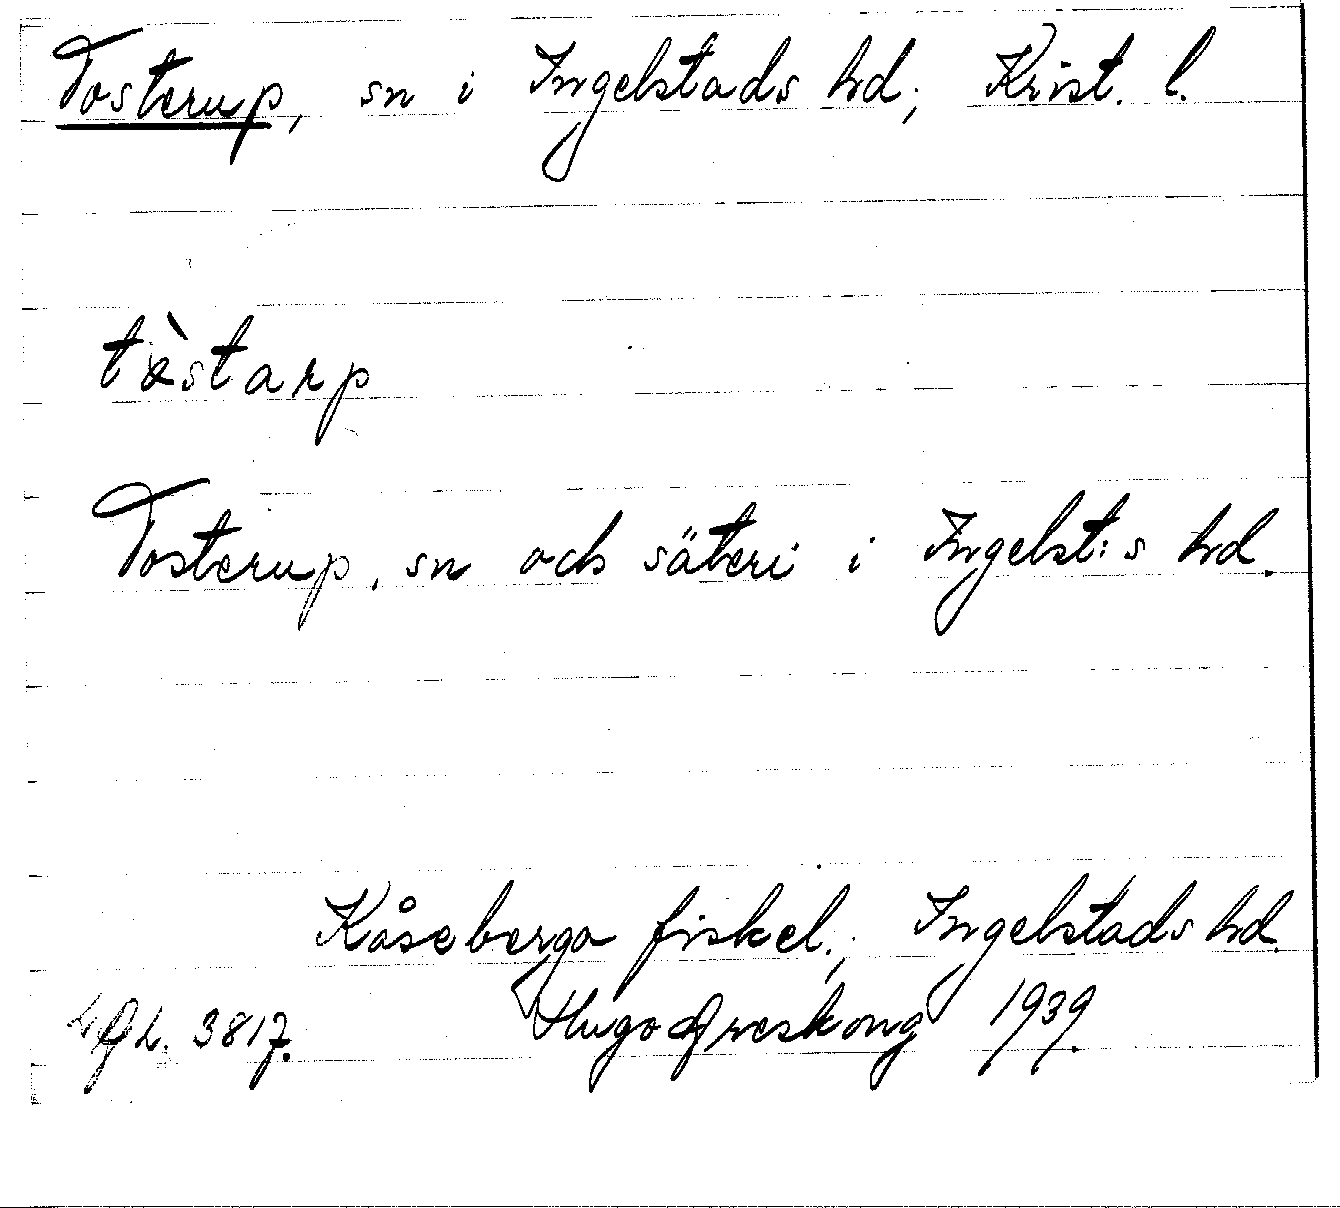 Tosterup, sn i Ingelstads hd; Krist. l.
tòstarp
Tosterup, sn och säteri i Ingelst:s hd.
Kåseberga fiskel.; Ingelstads hd.
3817. Hugo Areskoug 1939.